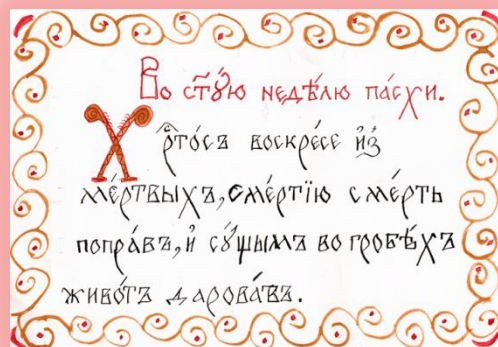 Во ст҃ꙋ́ю недѣ́лю па́схи.
Хрⷭ҇то́съ воскре́се и҆з̾
ме́ртвыхъ, сме́ртїю сме́рть
попра́въ, и҆ сꙋ́щымъ во гробѣ́хъ
живо́тъ дарова́въ.